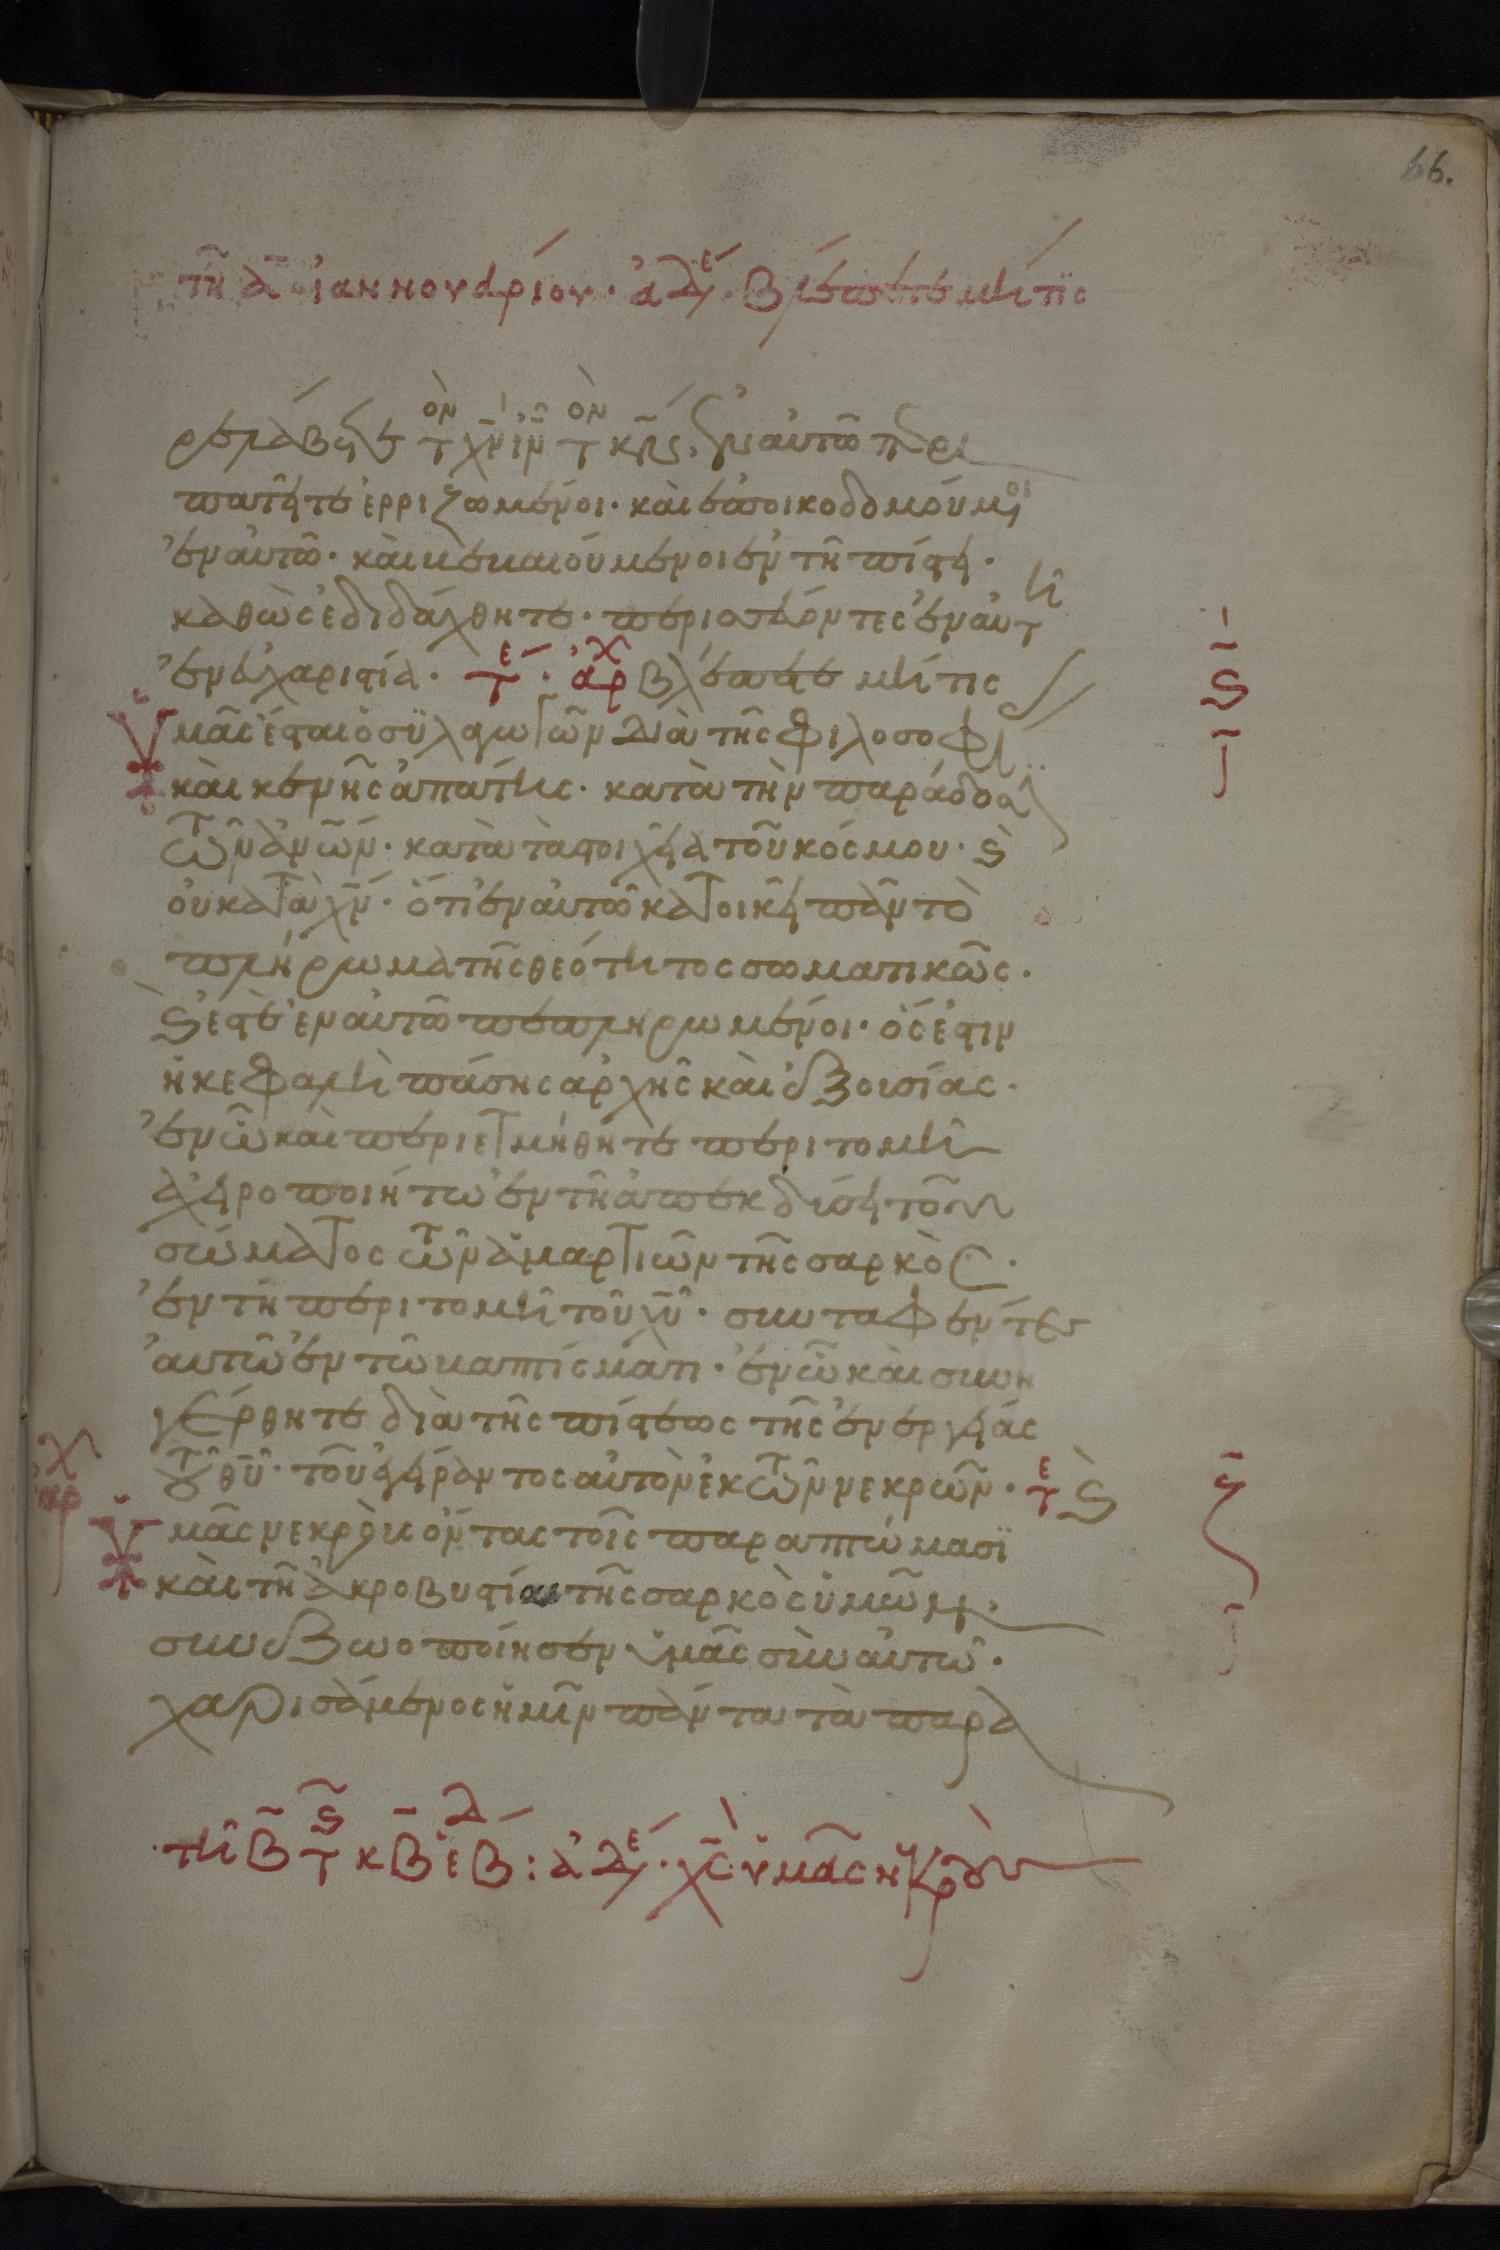 66.
τῆ α̅ ἰαννουαρίου· ἀδε· βλέπετε μή τις
ρελάβετε τὸν χ̅ν ι̅ν τὸν κ̅ν, ἐν αὐτῶ περι
πατεῖτε ἐρριζωμένοι· καὶ ἐποικοδομούμοι
ἐν αὐτῶ· καὶ βεβαιούμενοι ἐν τῆ πίστει·
καθὼς ἐδιδάχθητε· περισσεύοντες ἐν αὐτῆ
ἐν εὐχαριστία· τε· ἀρχ βλέπετε μή τις
Ὑμᾶς ἔσται ὁ συλαγωγῶν διὰ τῆς φιλοσοφι
καὶ κενῆς ἀπάτης· κατὰ τὴν παράδοσ
τῶν ἀνων· κατὰ τὰ στοιχεῖα τοῦ κόσμου· ϛ
οὐ κατὰ χ̅ν· ὅτι ἐν αὐτῶ κατοικεῖ πᾶν τὸ
πλήρωμα τῆς θεότητος σωματικῶς·
ϛ ἐστὲ ἐν αὐτῶ πεπληρωμένοι· ὅς ἐστιν
ἡ κεφαλὴ πάσης ἀρχῆς καὶ ἐξουσίας·
ἐν ὧ καὶ περιετμήθητε περιτομῆ
ἀχειροποιήτω ἐν τῆ ἀπεκδύσει τοῦ
σώματος τῶν ἁμαρτιῶν τῆς σαρκὸς·
ἐν τῆ περιτομῆ τοῦ χ̅υ· συνταφέντες
αὐτῶ ἐν τῶ βαπτίσματι· ἐν ὧ καὶ συνη
γέρθητε διὰ τῆς πίστεως τῆς ἐνεργείας
τοῦ θ̅υ· τοῦ ἐγείραντος αὐτὸν ἐκ τῶν νεκρῶν· τε ϛ
ἀρχ
Ὑμᾶς νεκροὺς ὄντας τοῖς παραπτώμασϊ
καὶ τῆ ἀκροβυστίαι τῆς σαρκὸς ὑμῶν·
συνεζωοποίησεν ὑμᾶς σὺν αὐτῶ·
χαρισάμενος ἡμῖν πάντα τὰ παρα
τῆ β̅ τ ϛ̅ κ̅β̅ ἑβδ: ἀδε· χ̅ς ὑμᾶς ν̅κροὺ